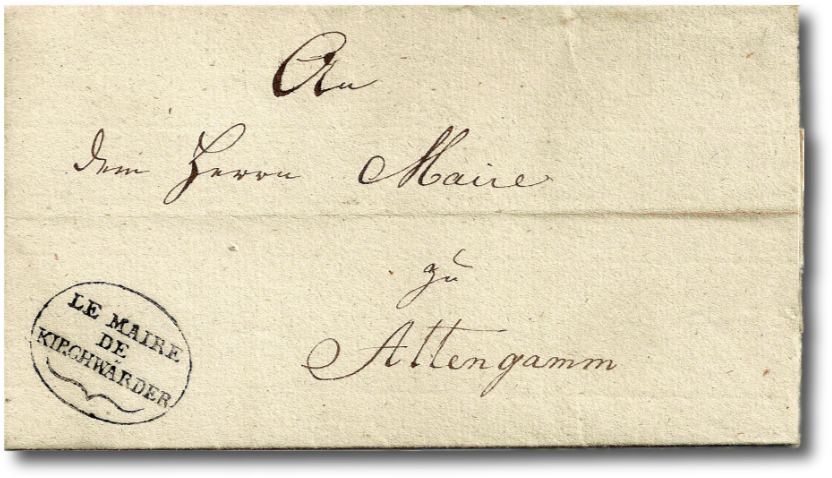 An
dem Herrn Maire
zu
Altengamm
LE MAIRE
DE
KIRCHWÄRDER